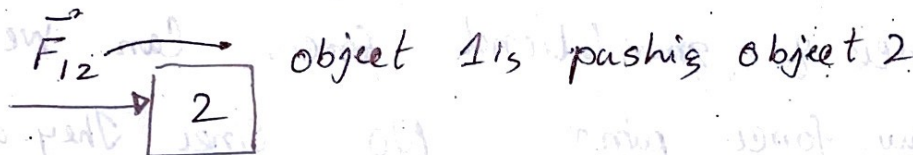 F⃗12 object 1 is pushig object 2
2